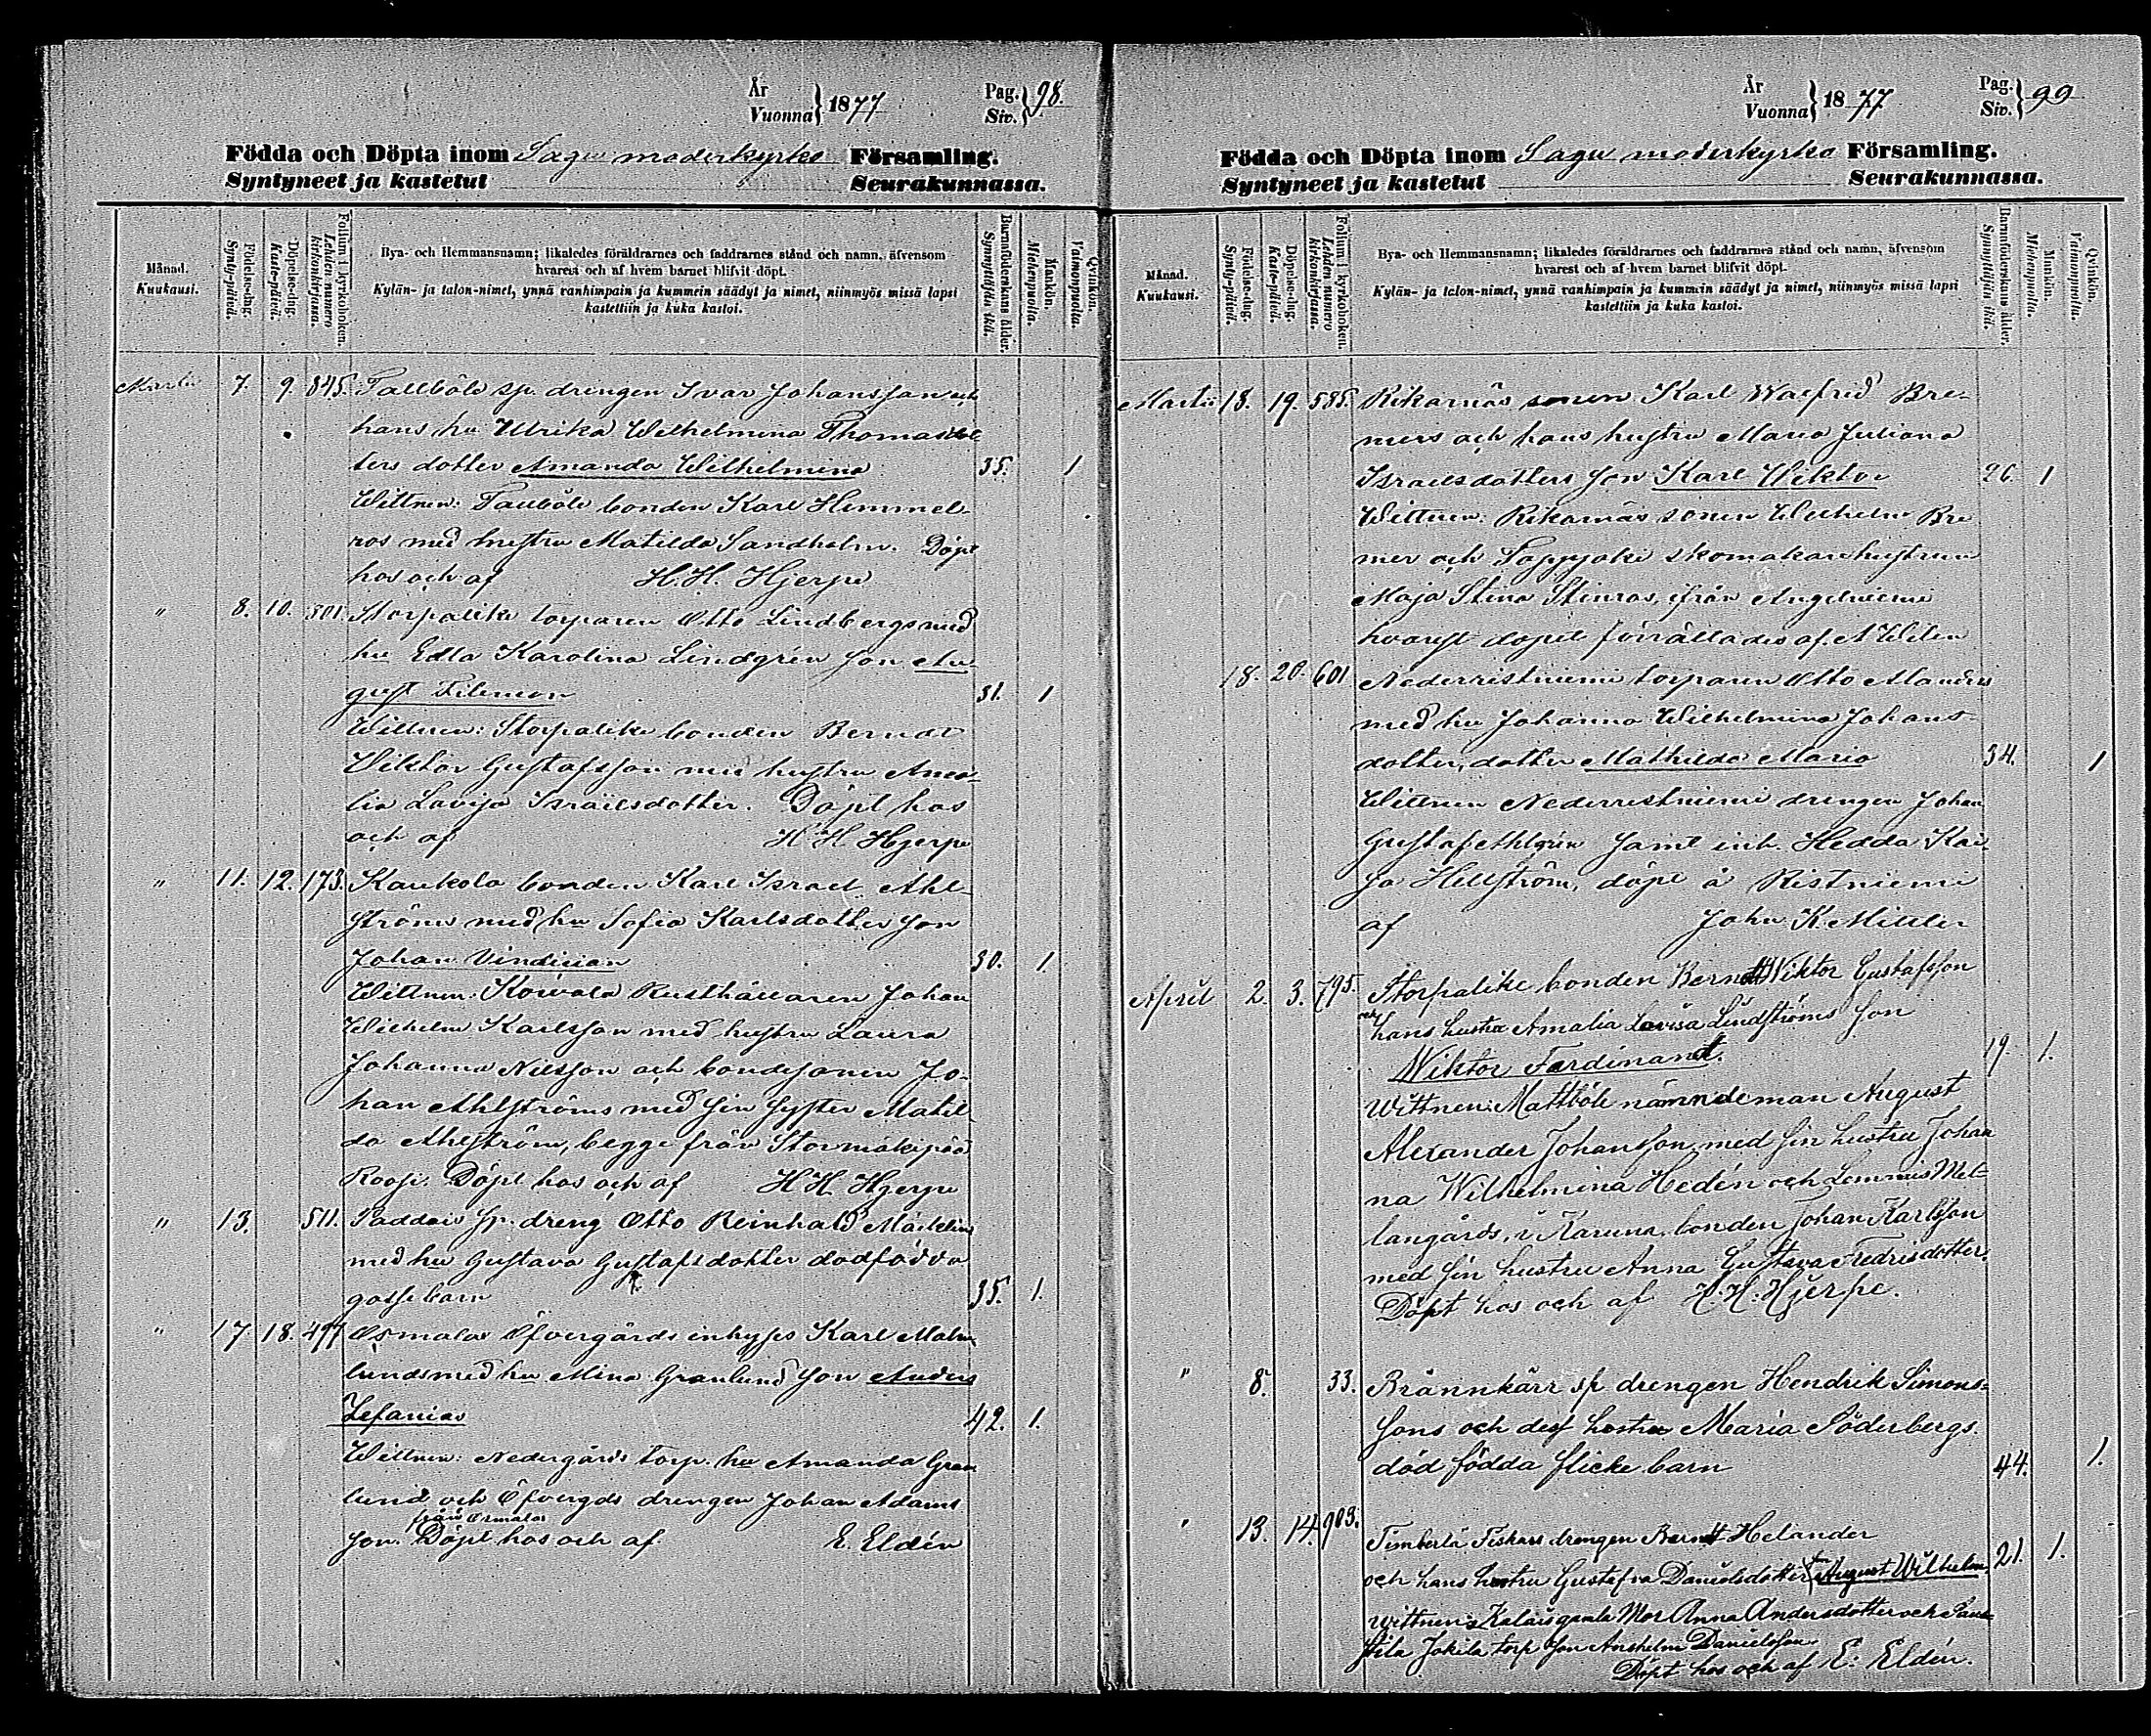 År
Vuonna } 1877
Pag.
Siv. } 98.
Födda och Döpta inom Sagu moderkyrko Församling.
Syntyneet ja kastetut Seurakunnassa.
Månad. Kuukausi.
Födelse-dag. Synty-päivä.
Döpelse-dag. Kaste-päivä.
Folium i kyrkoboken. Lehden numero kirkonkirjassa.
Bya- och Hemmansnamn; likaledes föräldrarnes och faddrarnes stånd och namn, äfvensom
hvarest och af hvem barnet blifvit döpt.
Kylän- ja talon-nimet, ynnä vanhimpain ja kummein säädyt ja nimet, niinmyös missä lapsi
kastettiin ja kuka kastoi.
Barnföderskans ålder. Synnyttäjän ikä.
Mankön. Miehenpuolia.
Qvinkön. Vaimonpuolia.
Martii 7. 9. 845. Tallböle sp. drengen Ivar Johansson och
hans hu Ulrika Wilhelmina Thomasdot
ters dotter Amanda Wilhelmina 35. 1
Wittnen: Tallböle bonden Karl Himmel-
ros med hustru Matilda Sandholm. Döpt
hos och af H. H. Hjerpe
" 8. 10. 801. Storpalike torparen Otto Lindbergs med
hu Edla Karolina Lindgrén son Au-
gust Filemon 31. 1
Wittnen: Storpalike bonden Berndt
Wiktor Gustafsson med hustru Ama-
lia Lovisa Israelsdotter. Döpt hos
och af H H Hjerpe
" 11. 12. 173. Kaukola bonden Karl Israel Ahl-
ströms med hu Sofia Karlsdotter son
Johan Vindician 30. 1.
Wittnen: Koivola Rusthållaren Johan
Wilhelm Karlsson med hustru Laura
Johanna Nilsson och bondesonen Jo-
han Ahlströms med sin syster Matil-
da Ahlström, begge från Stormäkipää
Roosi. Döpt hos och af H H Hjerpe
" 13. 511. Paddais sp. dreng Otto Reinhold
med hu Gustava Gustafsdotter dödfödda
gossebarn 35. 1.
" 17. 18. 477 Osmalas Öfvergårds inhyses Karl Malm
lunds med hu Mina Granlund son Anders
Zefanias 42. 1.
Wittnen: Nedergårds torp. hu Amanda Gran
lund och Öfvergds drengen Johan Adams
från Osmalas
son. Döpt hos och af E. Eldén
År
Vuonna } 1877
Pag.
Siv. } 99
Födda och Döpta inom Sagu moderkyrko Församling.
Syntyneet ja kastetut Seurakunnassa.
Månad. Kuukausi.
Födelse-dag. Synty-päivä.
Döpelse-dag. Kaste-päivä.
Folium i kyrkoboken. Lehden numero kirkonkirjassa.
Bya- och Hemmansnamn; likaledes föräldrarnes och faddrarnes stånd och namn, äfvensom
hvarest och af hvem barnet blifvit döpt.
Kylän- ja talon-nimet, ynnä vanhimpain ja kummein säädyt ja nimet, niinmyös missä lapsi
kastettiin ja kuka kastoi.
Barnföderskans ålder. Synnyttäjän ikä.
Mankön. Miehenpuolia.
Qvinkön. Vaimonpuolia.
Martii 18. 19. 585. Rikarnäs sonen Karl Walfrid Bre-
mers och hans hustru Maria Juliana
Israelsdotters son Karl Wiktor 26. 1
Wittnen: Rikarnäs sonen Wilhelm Bre
mer och Soppjoki skomakarehustrun
Maja Stina Stenros, ifrån Angelniemi
hvarest dopet förrättades af A Wilen
18. 20. 601 Nederristniemi torparen Otto Manders
med hu Johanna Wilhelmina Johans-
dotter, dotter Mathilda Maria 34. 1
Wittnen Nederristniemi drengen Johan
Gustaf Ahlgrén samt inh. Hedda Kai-
sa Hellström, döpt å Ristniemi
af John K. Miller
April 2. 3. 795. Storpalike bonden Berndt Wiktor Gustafsson
och hans hustru Amalia Lovisa Lindströms son
Wiktor Ferdinant. 19. 1.
Wittnen: Mattböle nämndeman August
Alexander Johansson med sin hustru Johan
na Wilhelmina Hedén och Lemmis Mel-
langårds, i Karuna, bonden Johan Karlsson
med sin hustru Anna Gustava Fredriksdotter.
Döpt hos och af H. H. Hjerpe.
" 8. 33. Brännkärr sp drengen Hendrik Simons-
sons och dess hustru Maria Söderbergs.
död födda flicke barn 44. 1.
" 13. 14. 903. Timberlä Fiskars drengen Berndt Helander
och hans hustru Gustafva Danielsdotter son August Wilhelm 21. 1.
Wittnen: Kalais gamla Mor Anna Andersdotter och
Jokela torp son Anshelm Danielsson.
Döpt hos och af E. Eldén.